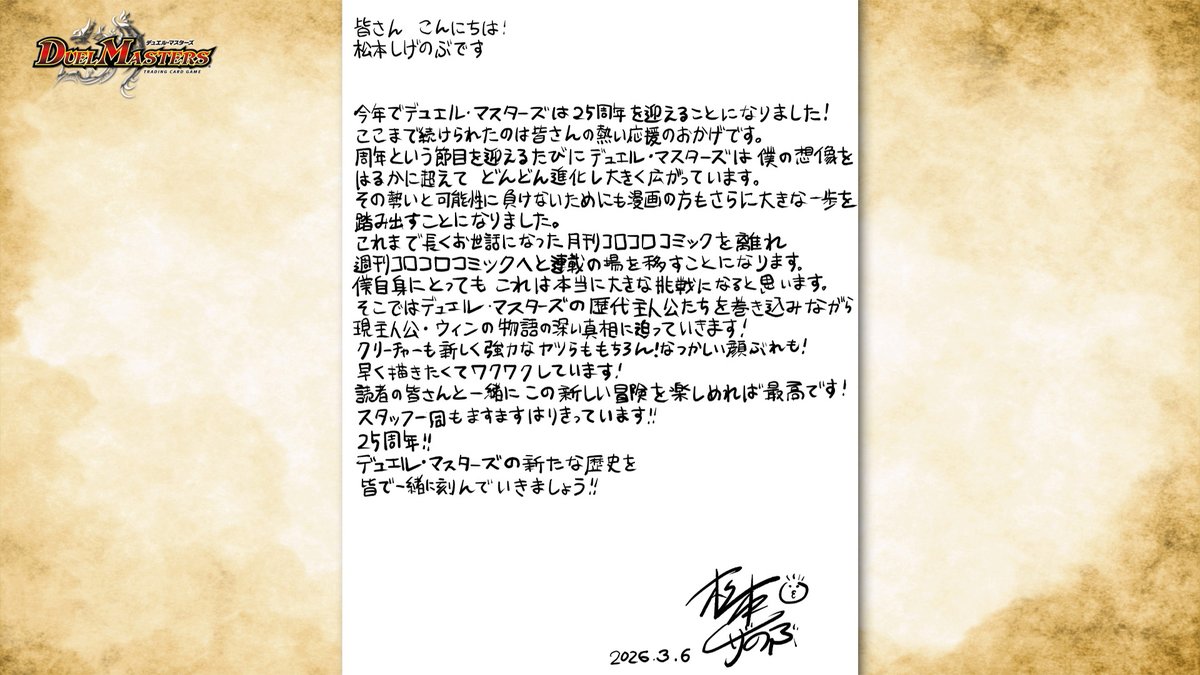 デュエル・マスターズ
DUEL MASTERS
TRADING CARD GAME
皆さん こんにちは!
松本しげのぶです
今年でデュエル・マスターズは25周年を迎えることになりました!
ここまで続けられたのは皆さんの熱い応援のおかげです。
周年という節目を迎えるたびにデュエル・マスターズは僕の想像を
はるかに超えて どんどん進化し大きく広がっています。
その勢いと可能性に負けないためにも漫画の方もさらに大きな一歩を
踏み出すことになりました。
これまで長くお世話になった月刊コロコロコミックを離れ
週刊コロコロコミックへと連載の場を移すことになります。
僕自身にとっても これは本当に大きな挑戦になると思います。
そこではデュエル・マスターズの歴代主人公たちを巻き込みながら
現主人公・ウィンの物語の深い真相に迫っていきます!
クリーチャーも新しく強力なヤツらももちろん!なつかしい顔ぶれも!
早く描きたくてワクワクしています!
読者の皆さんと一緒に この新しい冒険を楽しめれば最高です!
スタッフ一同もますますはりきっています!!
25周年!!
デュエル・マスターズの新たな歴史を
皆で一緒に刻んでいきましょう!!
松本しげのぶ
2026.3.6